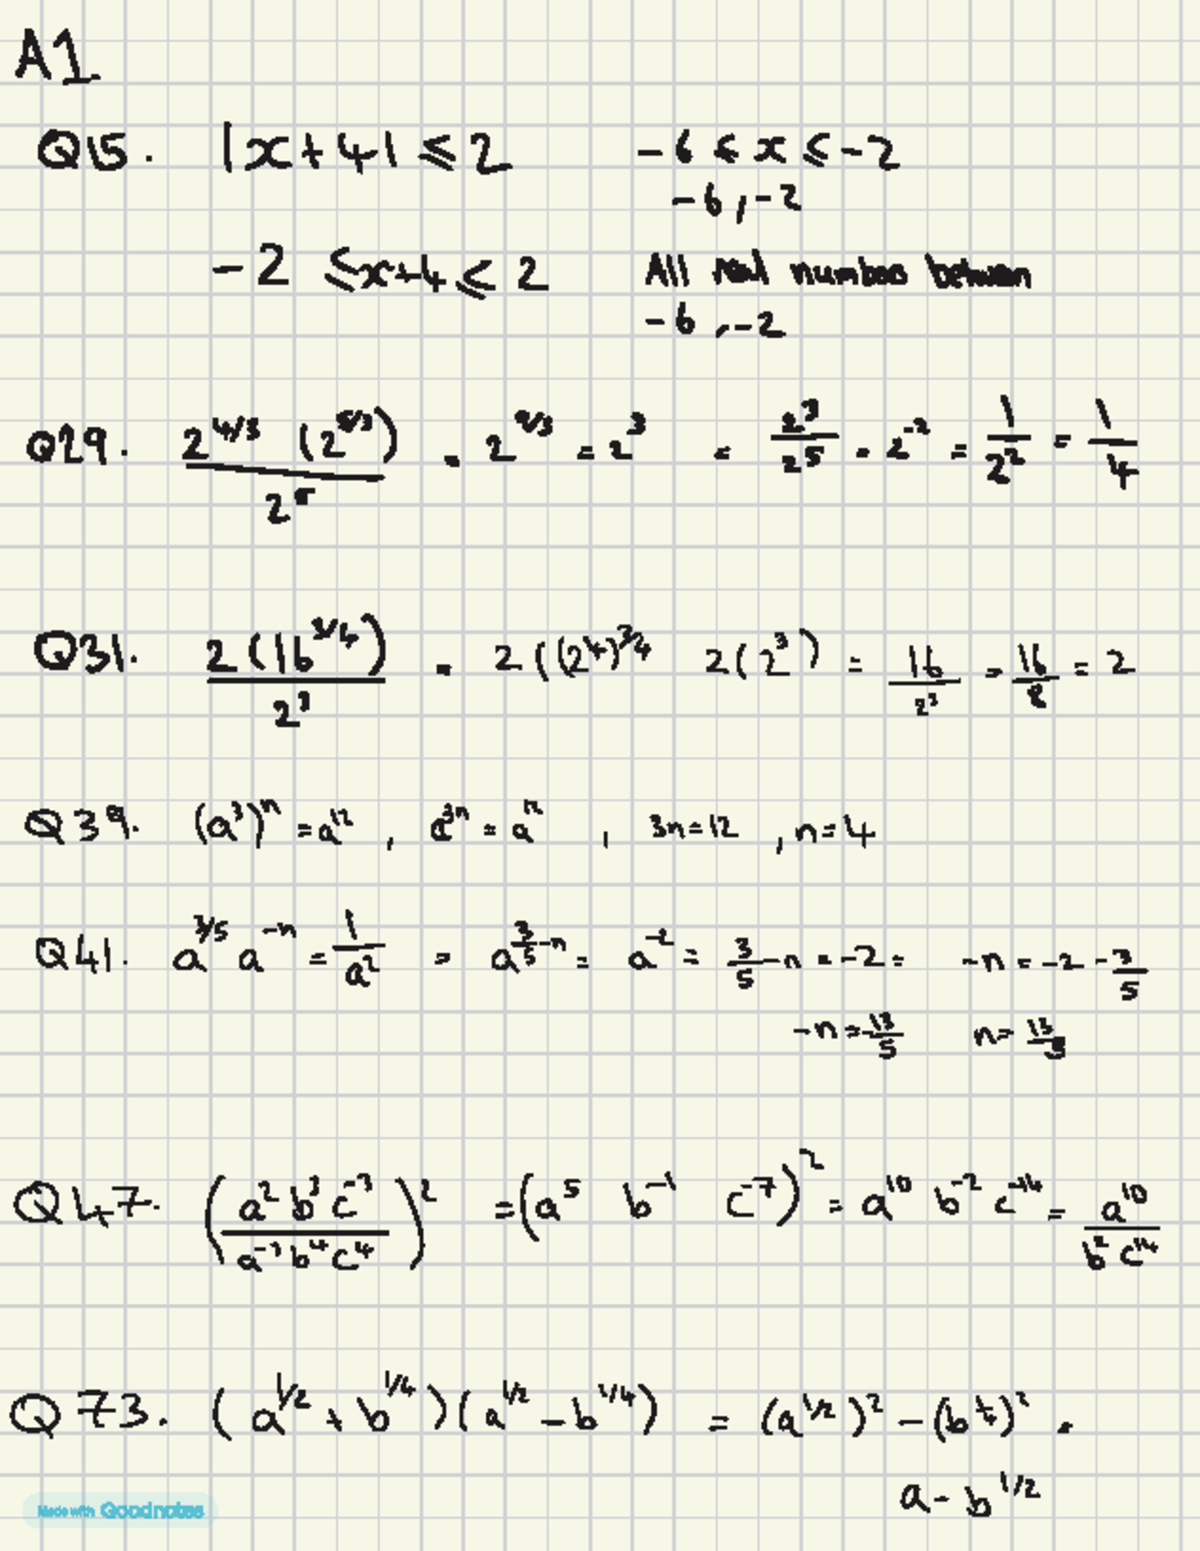 A1
Q15. |x+4| ≤ 2 -6 ≤ x ≤ -2
-6, -2
-2 ≤ x+4 ≤ 2 All real numbers between
-6, -2
Q29. 2^{4/3} (2^{5/3}) / 2^5 = 2^{9/3} = 2^3 = 2^3/2^5 = 2^{-2} = 1/2^2 = 1/4
Q31. 2(16^{3/4}) / 2^3 = 2((2^4)^{3/4} 2(2^3) = 16/2^3 = 16/8 = 2
Q39. (a^3)^n = a^{12}, a^{3n} = a^{12}, 3n=12, n=4
Q41. a^{3/5} a^{-n} = 1/a^2 = a^{3/5-n} = a^{-2} = 3/5-n = -2 = -n = -2 - 3/5
-n = -13/5 n = 13/5
Q47. (a^2 b^3 c^{-3} / a^{-3} b^4 c^4)^2 = (a^5 b^{-1} c^{-7})^2 = a^{10} b^{-2} c^{-14} = a^{10} / b^2 c^{14}
Q73. (a^{1/2} + b^{1/4})(a^{1/2} - b^{1/4}) = (a^{1/2})^2 - (b^{1/4})^2 =
a - b^{1/2}
Made with Goodnotes